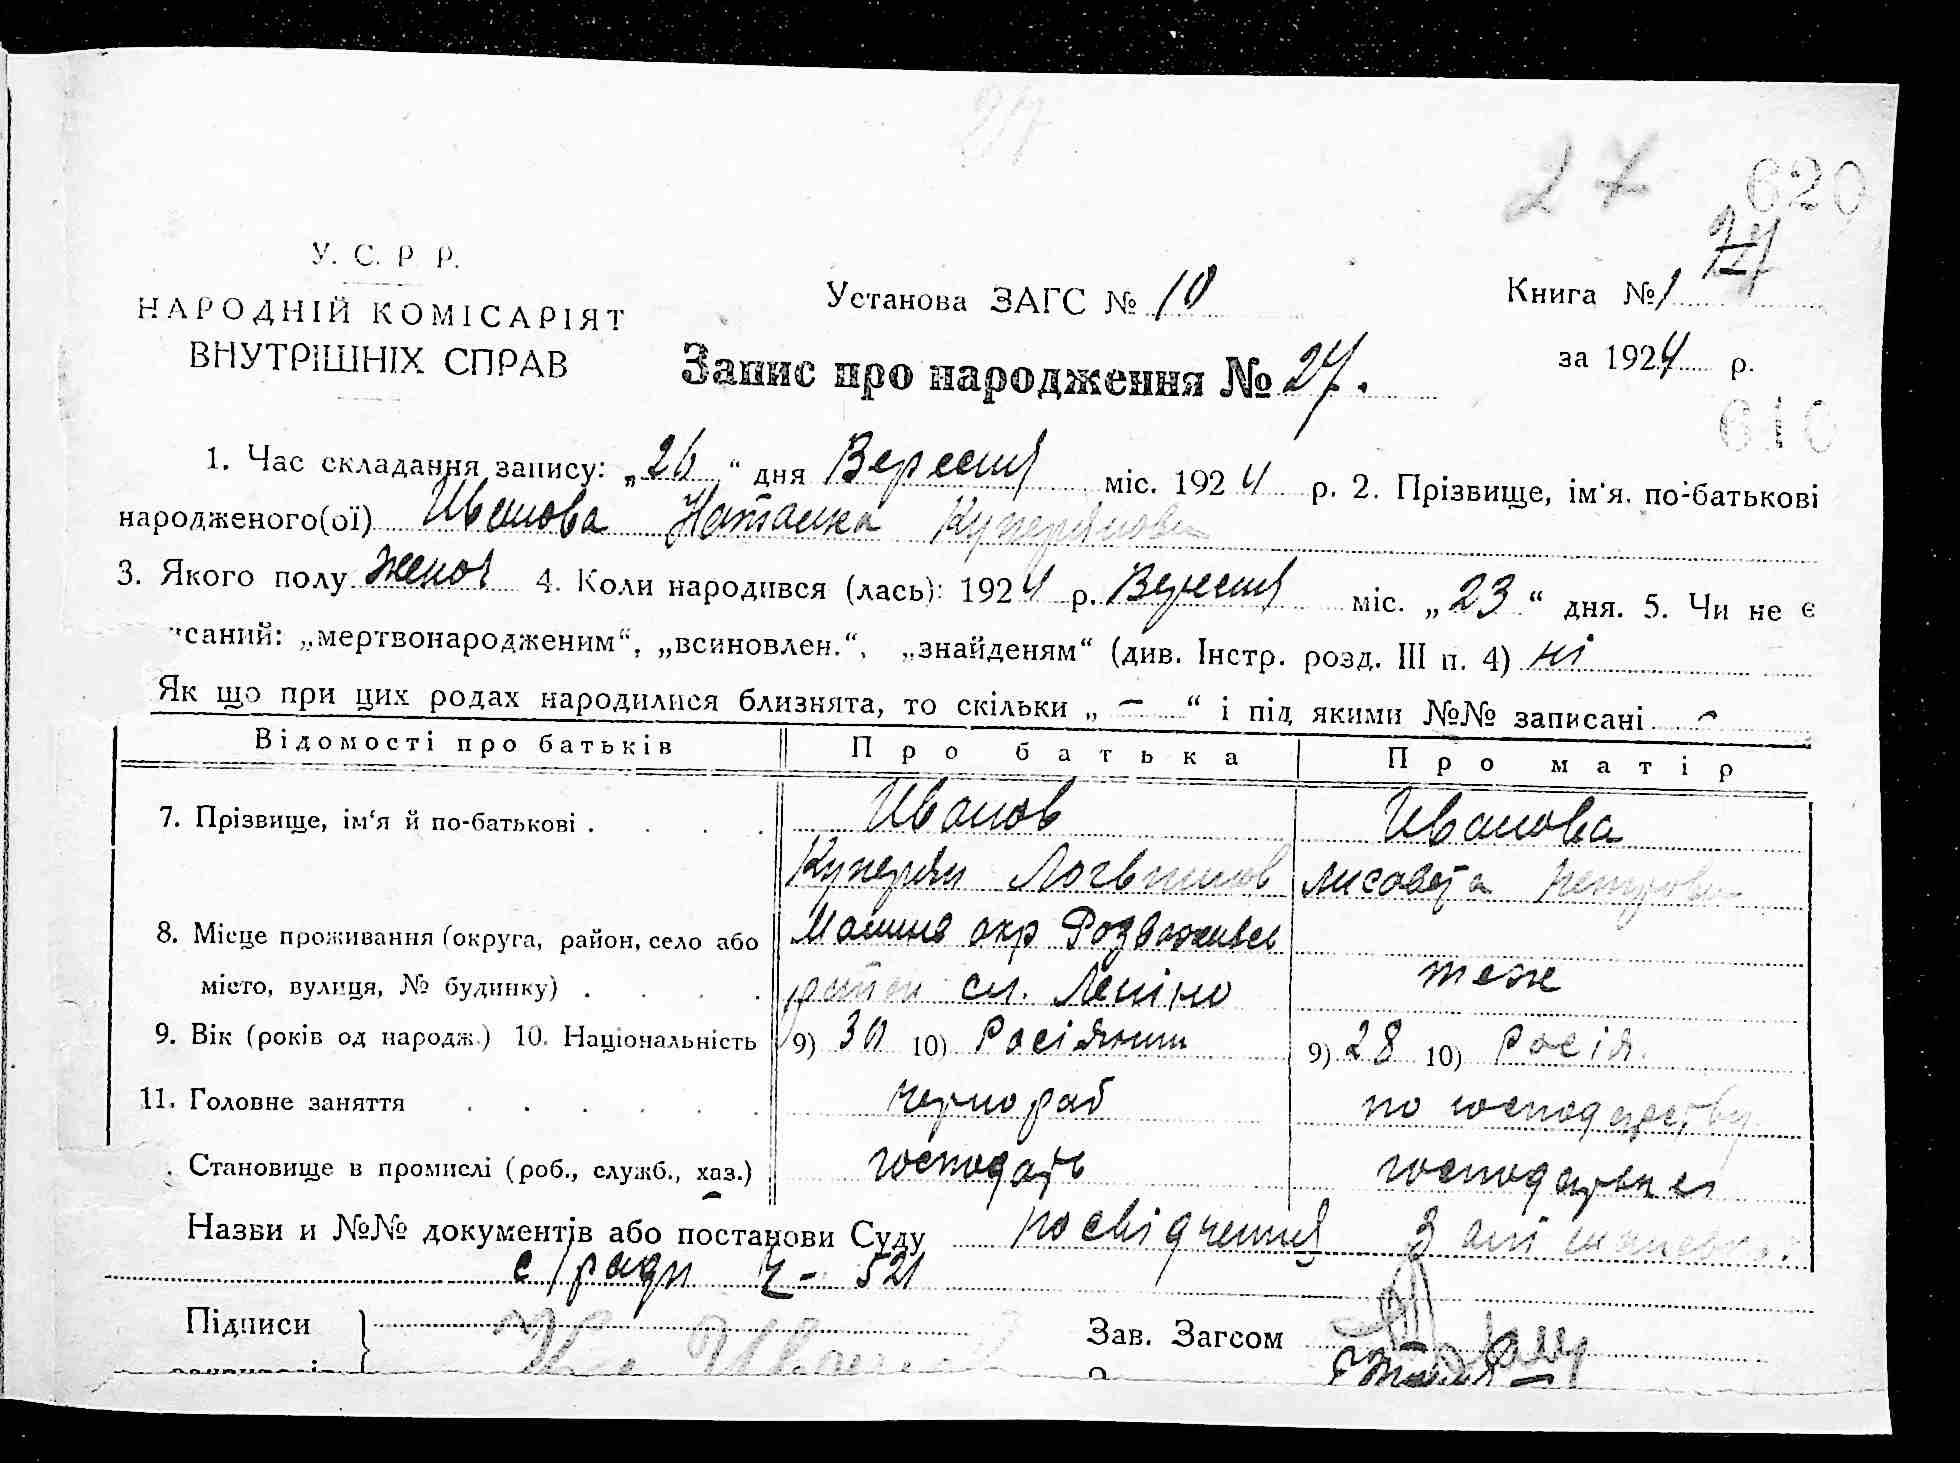 27
27 620
У. С. Р Р.
НАРОДНІЙ КОМІСАРІЯТ
ВНУТРІШНІХ СПРАВ
Установа ЗАГС № 10
Книга № 1
27
за 1924 р.
Запис про народження № 27.
610
1. Час складання запису: „26" дня Вересня міс. 1924 р. 2. Прізвище, ім'я, по-батькові
народженого(ої) Иванова Наталка Куперянова
3. Якого полу женоч 4. Коли народився (лась): 1924 р. Вересня міс. „23" дня. 5. Чи не є
саний: „мертвонародженим", „всиновлен.", „знайденям" (див. Інстр. розд. III п. 4) ні
Як що при цих родах народилися близнята, то скільки „ – " і під якими №№ записані –
Відомості про батьків Про батька Про матір
7. Прізвище, ім'я й по-батькові . . . . Иванов Иванова
Куперян Логвинов Лисовета Петровна
8. Місце проживання (округа, район, село або Малина окр Розваживсь
місто, вулиця, № будинку) . . . . район сл. Леніно теж
9. Вік (років од народж.) 10. Національність 9) 30 10) Росіянин 9) 28 10) Росія.
11. Головне заняття . . . . . . чернораб по господарству
. Становище в промислі (роб., служб., хаз.) господарь господарька
Назви и №№ документів або постанови Суду посвідчення
с/ради ч – 521
Підписи } Зав. Загсом